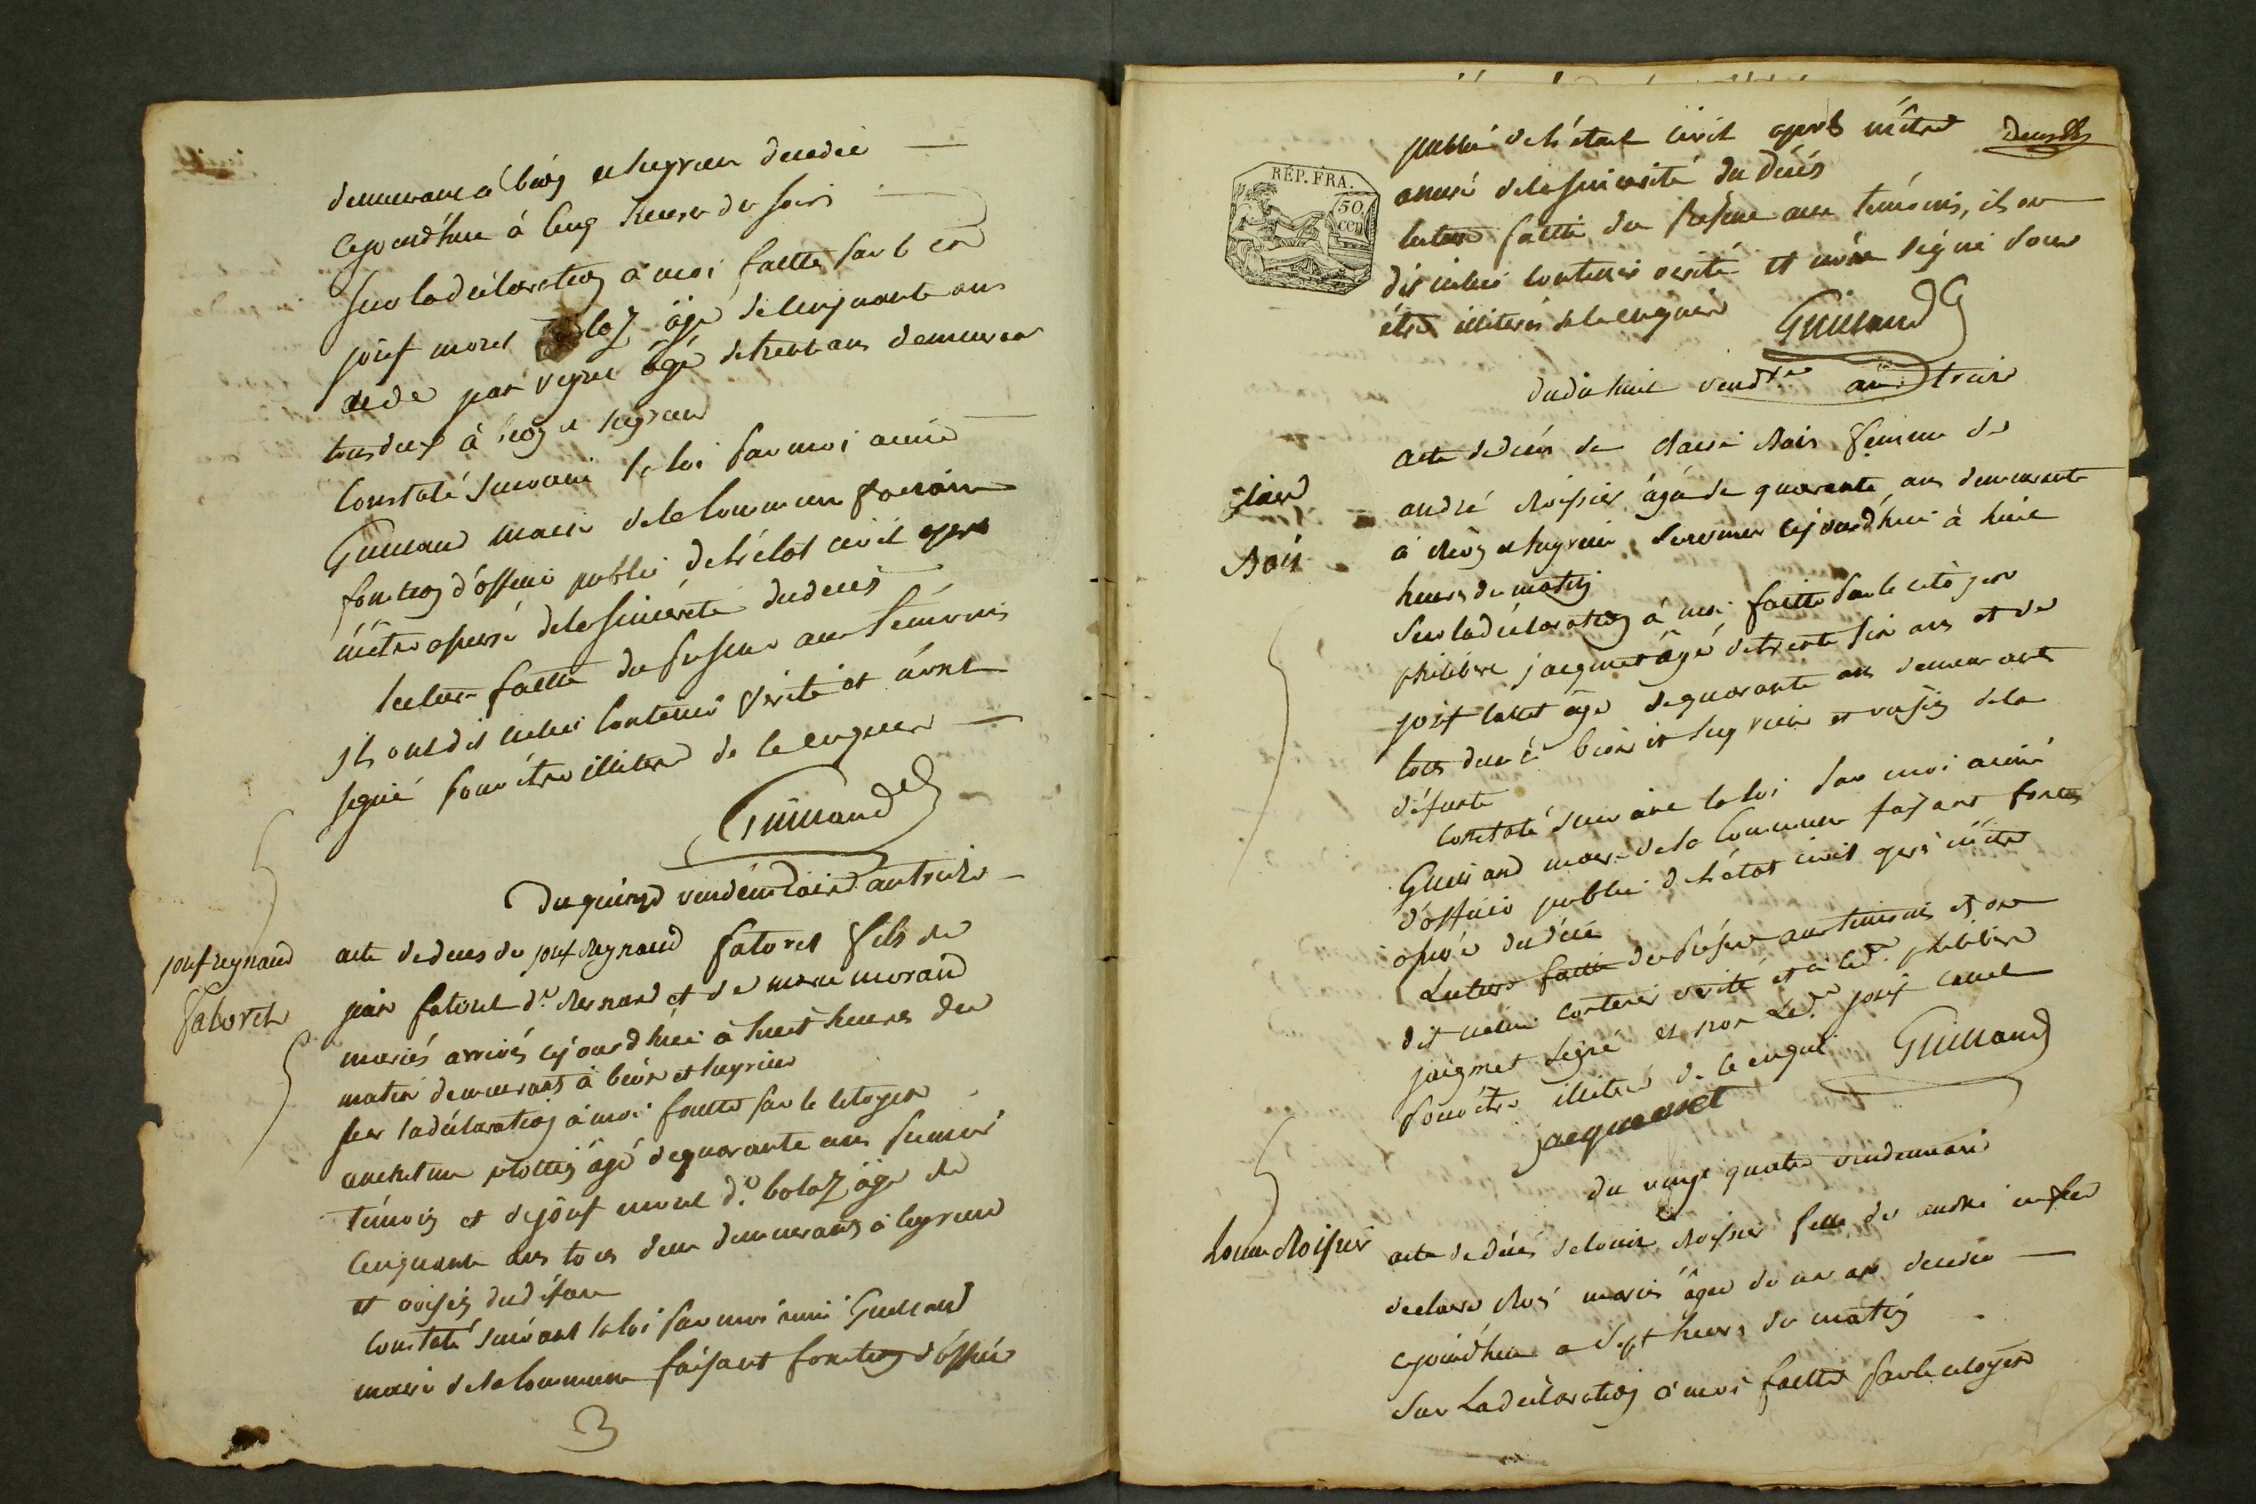 demeurant à bioz et legrieu decedé
cejourd'hui à cinq heures du soir
sur la declaration à moi faitte par le cn
josef morel bolaz âgé de cinquante ans
et de âgé de trente ans demeurant
tous deux à bioz et legrieu
Constaté suivant la loi par moi aimé
Guillaud maire de la commune faisant
fonction d'officier public de l'état civil apres
m'étre assuré de la sincerité du deces
lecture faitte du present aux témoins
ils ont dit icelui contenir verité et n'ont
signé pour être illiteré de ce enquis
Guillaud
Du quinze vendémiaire an treize
josef reynaud
fatoret
acte de deces de josef Reynaud fatoret fils de
jean fatoret dt Reynaud et de marie moraud
mariés arrivé cejourd'hui à huit heures du
matin demeurant à bioz et legrieu
sur la déclaration à moi faitte par le citoyen
anthelme âgé de quarante ans premier
témoin et de josef morel dt bolaz âgé de
cinquante ans tous deux demeurants à legrieu
et voisins du défunt
Constaté suivant la loi par moi aimé Guillaud
maire de la commune faisant fonction d'officier
3
public de l'état civil après m'être
assuré de la sincerité du décés
RÉP. FRA.
50
CEN
lecture faitte du present aux témoins, ils ont
dit icelui contenir verité et n'ont signé pour
étre illiterés de ce enquis
Guillaud
du dix huit vendre an treize
Claire
Roÿ
acte de decés de claire Rois femme de
andré Roissier âgée de quarante ans demeurante
à bioz et legrieu cejourd'hui à huit
heures du matin
Sur la déclaration à moi faitte par le citoyen
philibert jacquet âgé de trente six ans et de
josef cattet âgé de quarante ans demeurants
tous deux à bioz et legrieu et voisin de la
défunte
Constaté suivant la loi par moi aimé
Guillaud maire de la commune faisant fonction
d'officier public de l'état civil après m'être
assuré du décé
Lecture faitte du présent aux témoins ils ont
dit icelui contenir verité et a ledt philibert
jacquet signé et non Ledt josef cattet
pour être illiteré de ce enqui
Guillaud
jacquemet
du vingt quatre vendemiaire
Louise Roissier
acte de décés de louise Roissier fille de andré
de claire Rois mariés âgée de un an decedée
cejourd'hui a sept heures du matin
Sur La déclaration à moi faitte par le citoyen